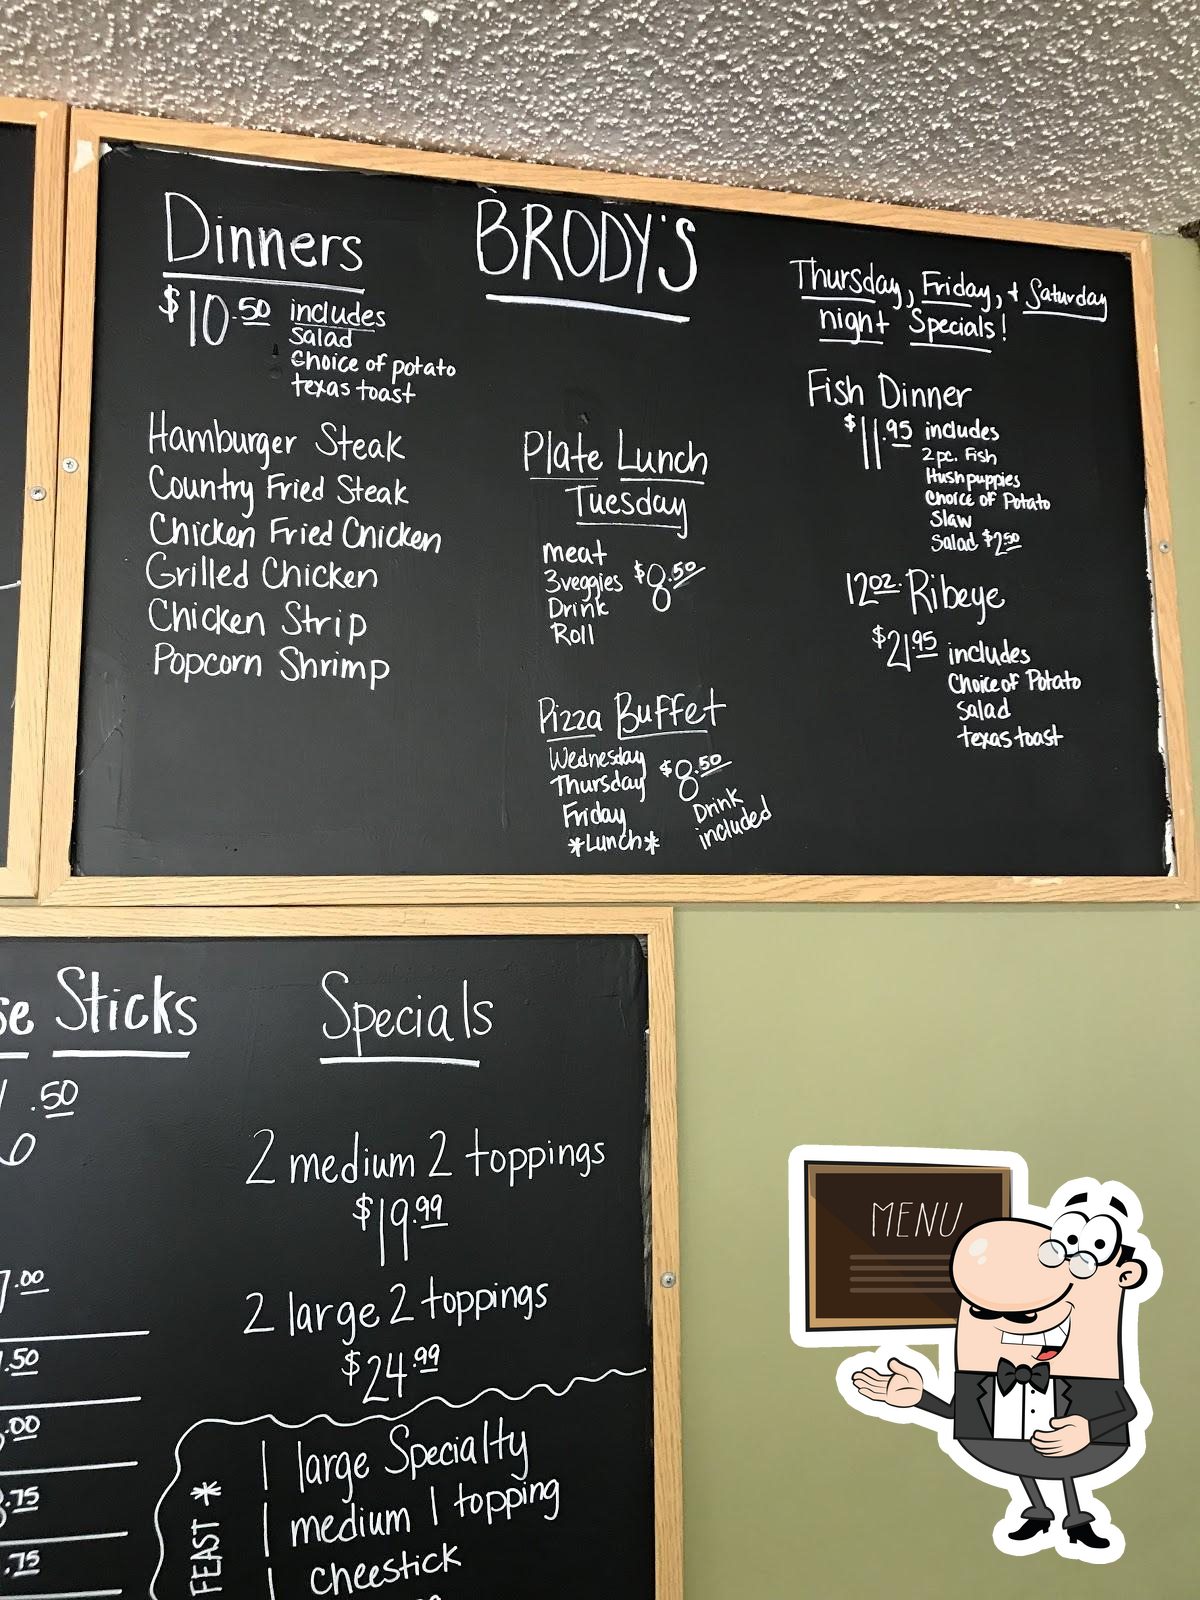 Dinners
$10.50 includes
Salad
Choice of potato
texas toast
Hamburger Steak
Country Fried Steak
Chicken Fried Chicken
Grilled Chicken
Chicken Strip
Popcorn Shrimp
BRODY'S
Plate Lunch
Tuesday
meat
3 veggies $8.50
Drink
Roll
Pizza Buffet
Wednesday
Thursday $8.50
Friday Drink
*Lunch* included
Thursday, Friday, + Saturday
night Specials!
Fish Dinner
$11.95 includes
2 pc. Fish
Hushpuppies
Choice of Potato
Slaw
Salad $2.50
12oz. Ribeye
$21.95 includes
Choice of Potato
Salad
texas toast
se Sticks
.50
7.00
.50
.00
.75
.75
Specials
2 medium 2 toppings
$19.99
2 large 2 toppings
$24.99
FEAST *
1 large Specialty
1 medium 1 topping
1 cheestick
MENU